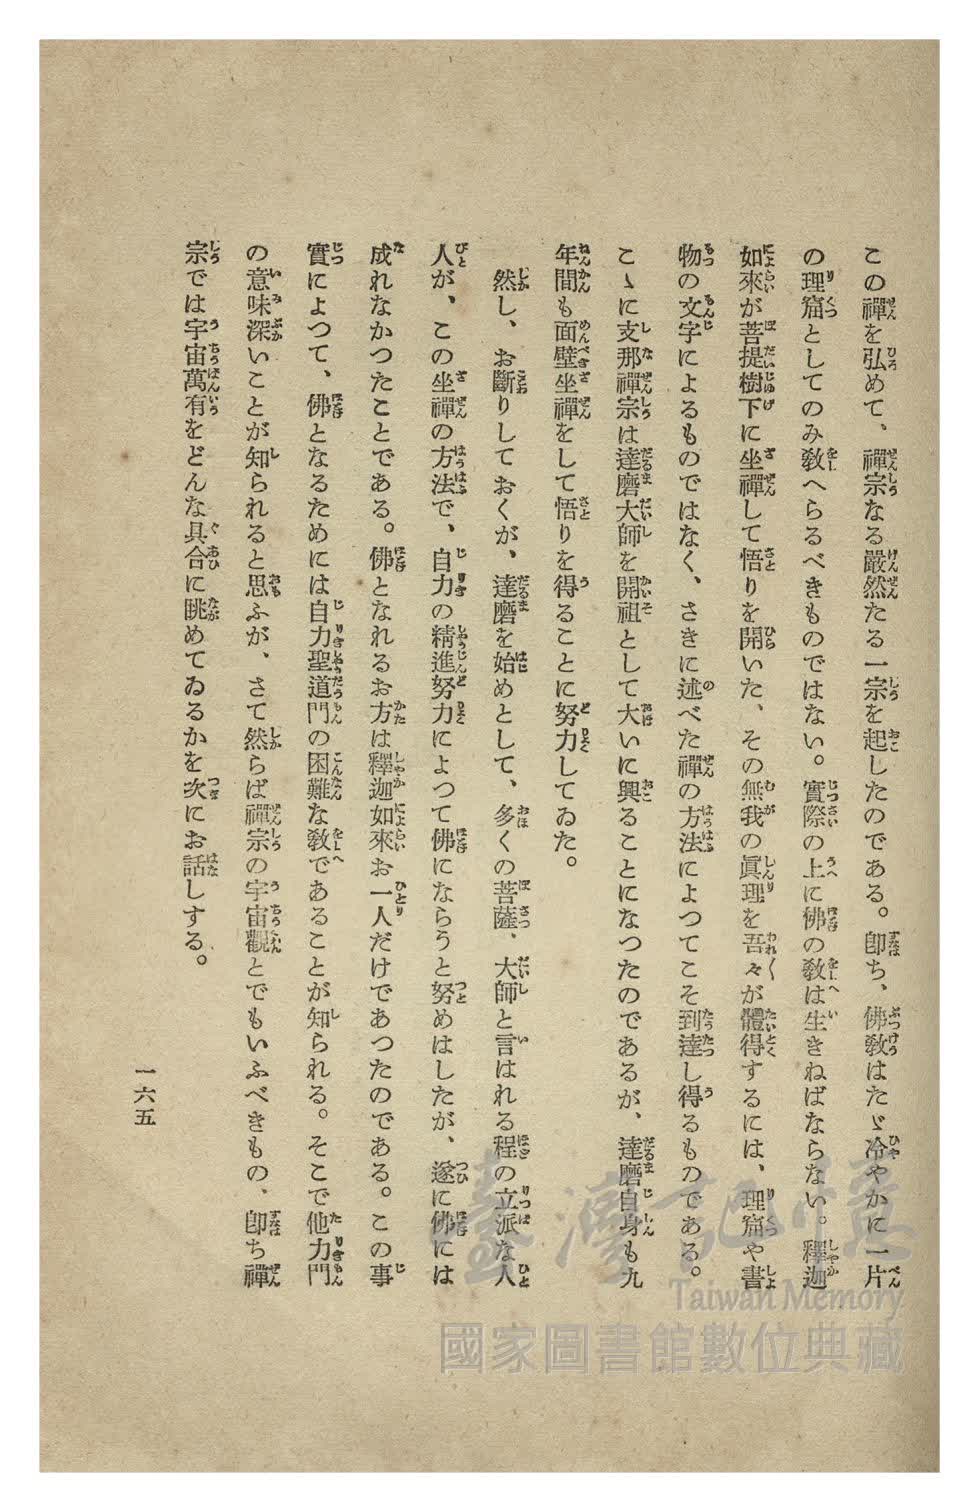 この禪を弘めて、禪宗なる嚴然たる一宗を起したのである。卽ち、佛敎はたゞ冷やかに一片
の理窟としてのみ敎へらるべきものではない。實際の上に佛の敎は生きねばならない。釋迦
如來が菩提樹下に坐禪して悟りを開いた、その無我の眞理を吾々が體得するには、理窟や書
物の文字によるものではなく、さきに述べた禪の方法によつてこそ到達し得るものである。
こゝに支那禪宗は達磨大師を開祖として大いに興ることになつたのであるが、達磨自身も九
年間も面壁坐禪をして悟りを得ることに努力してゐた。
然し、お斷りしておくが、達磨を始めとして、多くの菩薩、大師と言はれる程の立派な人
人が、この坐禪の方法で、自力の精進努力によつて佛にならうと努めはしたが、遂に佛には
成れなかつたことである。佛となれるお方は釋迦如來お一人だけであつたのである。この事
實によつて、佛となるためには自力聖道門の困難な敎であることが知られる。そこで他力門
の意味深いことが知られると思ふが、さて然らば禪宗の宇宙觀とでもいふべきもの、卽ち禪
宗では宇宙萬有をどんな具合に眺めてゐるかを次にお話しする。
一六五
臺灣記憶
Taiwan Memory
國家圖書館數位典藏